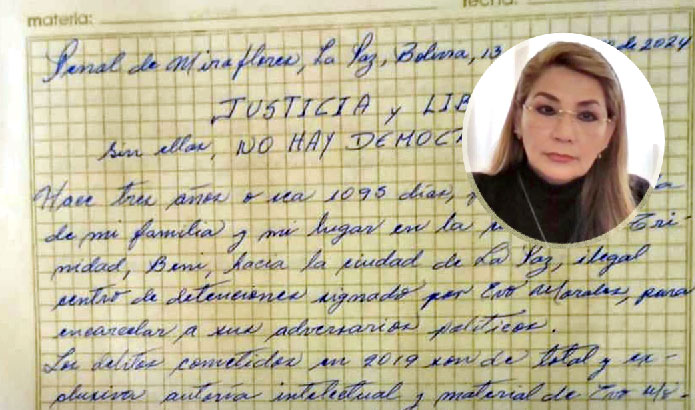 materia:
fecha:
Penal de Miraflores, La Paz, Bolivia, 13 de 2024
JUSTICIA y LIB
sin ellas, NO HAY DEMOCR
Hace tres años o sea 1095 días,
de mi familia y mi lugar en la Tri
nidad, Beni, hacia la ciudad de La Paz, ilegal
centro de detenciones signado por Evo Morales, para
encarcelar a sus adversarios políticos.
Los delitos cometidos en 2019 son de total y ex-
clusiva autoría intelectual y material de Evo